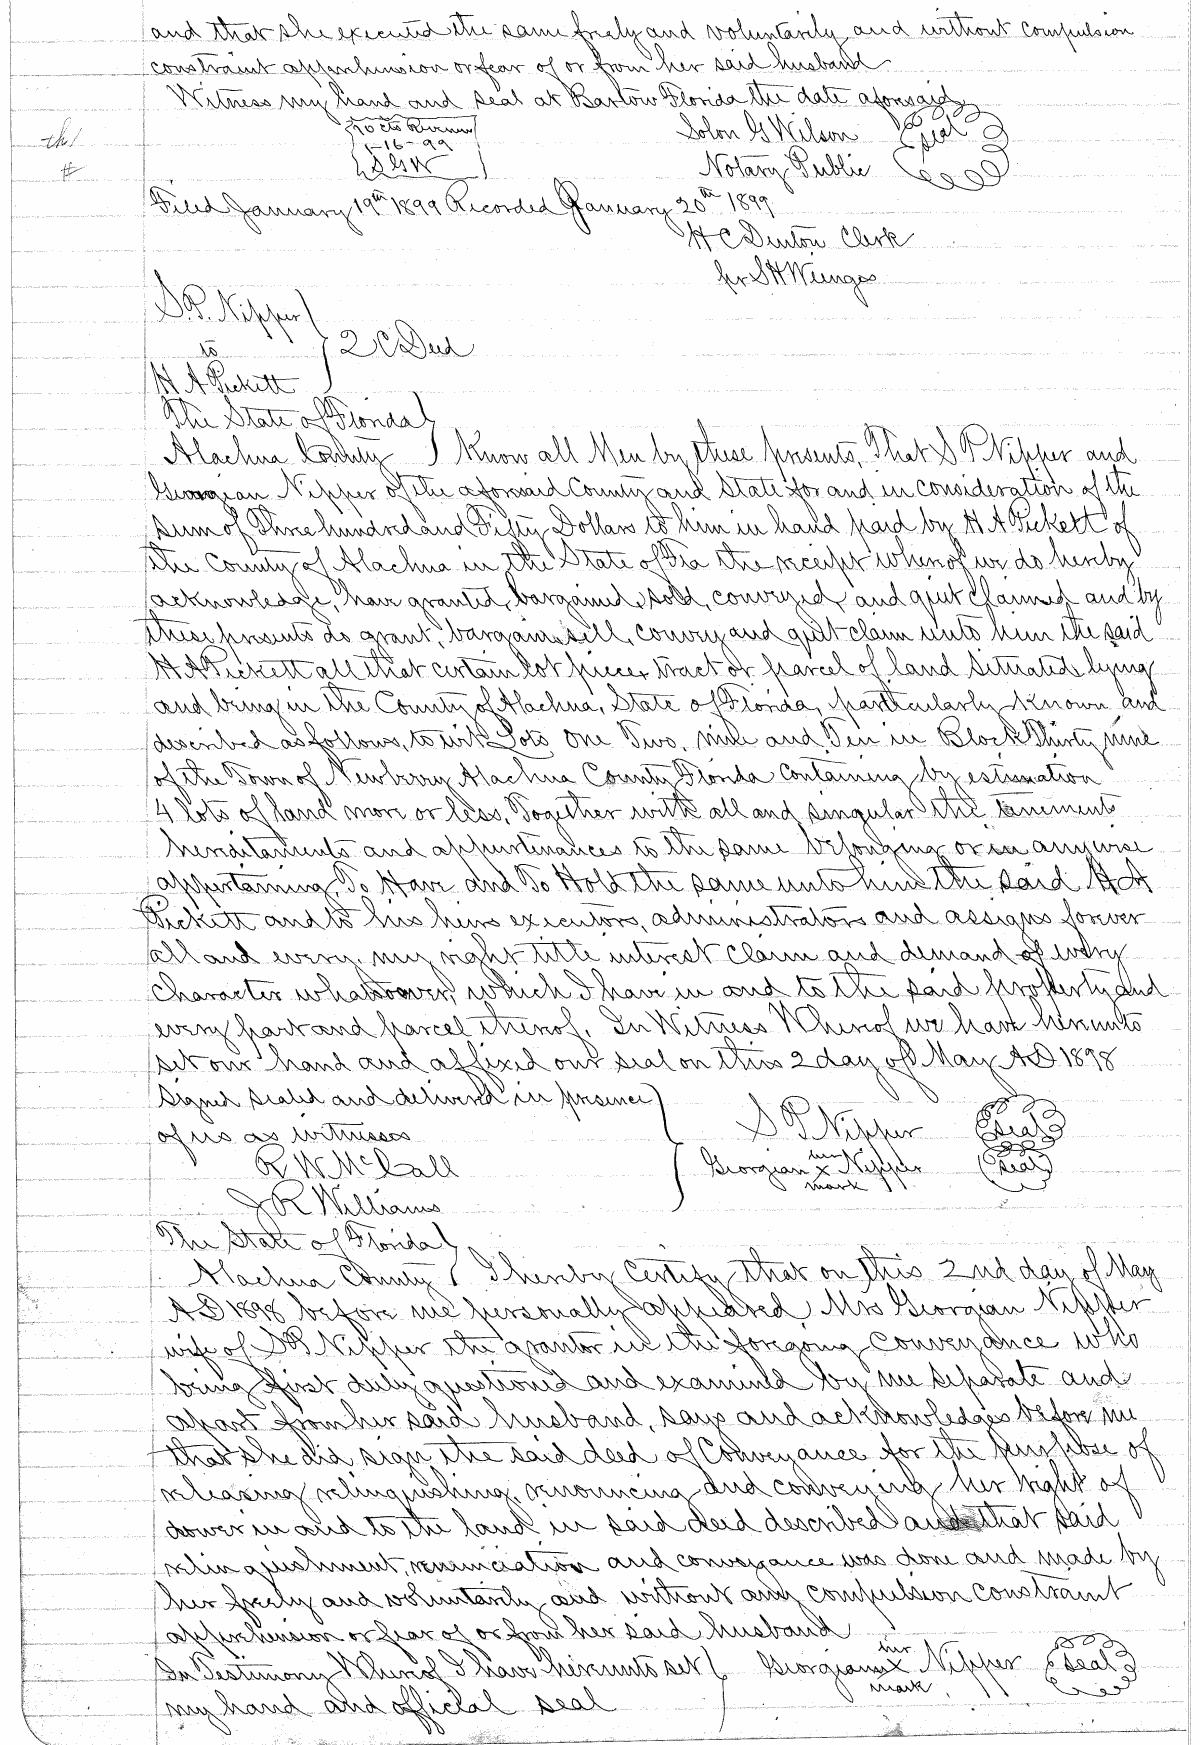 and that she executed the same freely and voluntarily and without compulsion
constraint apprehension or fear of or from her said husband
Witness my hand and seal at Bartow Florida the date aforesaid
50 cts Revenue
1-16-99
SGW
Solon G Wilson (seal)
Notary Public
Filed January 19th 1899 Recorded January 20th 1899
H C Denton Clerk
per S H Wienges
S. P. Nipper
to
2 C Deed
H A Pickett
The State of Florida
Alachua County Know all Men by these presents, That S P Nipper and
Georgian Nipper of the aforesaid County and State for and in consideration of the
sum of Three hundred and Fifty Dollars to him in hand paid by H A Pickett of
the County of Alachua in the State of Fla the receipt whereof we do hereby
acknowledge, have granted, bargained, sold, conveyed, and quit claimed and by
these presents do grant, bargain, sell, convey and quit claim unto him the said
H A Pickett all that certain lot piece, tract or parcel of land situated, lying
and being in the County of Alachua, State of Florida, particularly known and
described as follows, to wit Lots One Two, nine and Ten in Block Thirty nine
of the Town of Newberry, Alachua County Florida containing by estimation
4 lots of land more or less, Together with all and singular the tenement
hereditaments and appurtenances to the same belonging or in anywise
appertaining, To Have and To Hold the same unto him the said H A
Pickett and to his heirs executors, administrators and assigns forever
all and every my right title interest claim and demand of every
character whatsoever, which I have in and to the said property and
every part and parcel thereof. In Witness Whereof we have hereunto
set our hand and affixed our seal on this 2 day of May A D 1898
Signed sealed and delivered in presence
of us as witnesses
S P Nipper (Seal)
R W McCall
her
Georgian x Nipper (Seal)
mark
J R Williams
The State of Florida
Alachua County I hereby Certify that on this 2nd day of May
A D 1898 before me personally appeared Mrs Georgian Nipper
wife of S P Nipper the grantor in the foregoing Conveyance who
being first duly questioned and examined by me separate and
apart from her said husband, says and acknowledges before me
that she did sign the said deed of Conveyance for the purpose of
releasing relinquishing, renouncing and conveying her right of
dower in and to the land in said deed described and that said
relinquishment, renunciation and conveyance was done and made by
her freely and voluntarily and without any compulsion constraint
apprehension or fear of or from her said husband
her
In Testimony Whereof I have hereunto set Georgian x Nipper (Seal)
mark
my hand and official seal